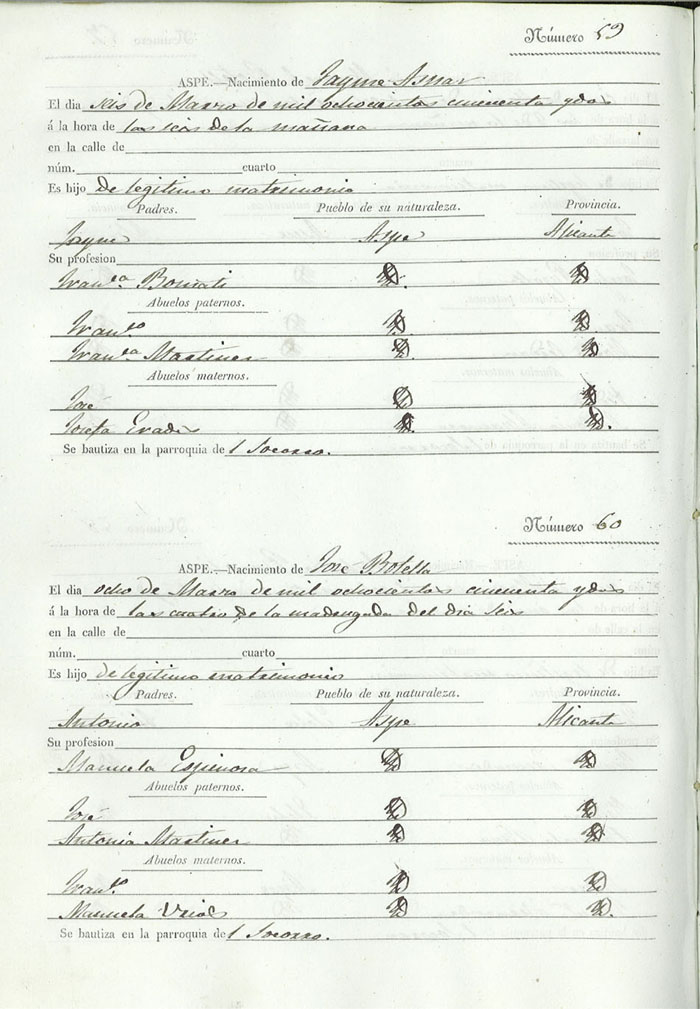 Número 59
ASPE.—Nacimiento de Jayme Asnar
El dia seis de Marzo de mil ochocientos cincuenta y dos
á la hora de las seis de la mañana
en la calle de
núm. cuarto
Es hijo de legitimo matrimonio
Padres. Pueblo de su naturaleza. Provincia.
Jayme Aspe Alicante
Su profesion
Fran.ca
Abuelos paternos.
Fran.co
Fran.ca Martinez
Abuelos maternos.
José
Josefa
Se bautiza en la parroquia de l Socorro.
Número 60
ASPE.—Nacimiento de José Botella
El dia ocho de Marzo de mil ochocientos cincuenta y dos
á la hora de las cuatro de la madrugada del dia seis
en la calle de
núm. cuarto
Es hijo de legitimo matrimonio
Padres. Pueblo de su naturaleza. Provincia.
Antonio Aspe Alicante
Su profesion
Manuela Espinosa
Abuelos paternos.
José
Antonia Martinez
Abuelos maternos.
Fran.co
Manuela
Se bautiza en la parroquia de l Socorro.